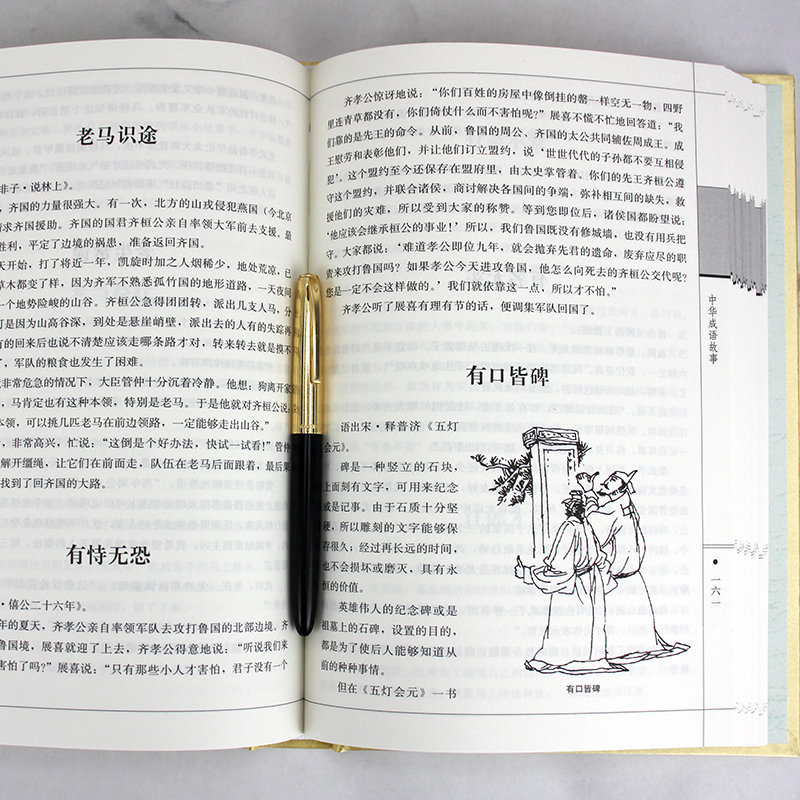 老马识途
非子·说林上》。
，齐国的力量很强大。有一次，北方的山戎侵犯燕国（今北京
请求齐国援助。齐国的国君齐桓公亲自率领大军前去支援。最
胜利，平定了边境的祸患，准备返回齐国。
天开始，打了将近一年，凯旋时加之人烟稀少，地处荒凉，已
草木都变了样，因为齐军不熟悉孤竹国的地形道路，一天夜间
一个地势险峻的山谷。齐桓公急得团团转，派出几支人马，分
可是因为山高谷深，到处是悬崖峭壁，派出去的人有的失踪
有的回来后也说不清楚应该走哪条路才对，转来转去就是摸不
了，军队的粮食也发生了困难。
非常危急的情况下，大臣管仲十分沉着冷静。他想：狗离开家
，马肯定也有这种本领，特别是老马。于是他就对齐桓公说：
本领，可以挑几匹老马在前边领路，一定能够走出山谷。”
，非常高兴，忙说：“这倒是个好办法，快试一试看！”管仲
解开缰绳，让它们在前面走，队伍在老马后面跟着，最后果
找到了回齐国的大路。
有恃无恐
·僖公二十六年》。
年的夏天，齐孝公亲自率领军队去攻打鲁国的北部边境。齐
鲁国境，展喜就迎了上去，齐孝公得意地说：“听说我们来
害怕了吗？”展喜说：“只有那些小人才害怕，君子没有一个
齐孝公惊讶地说：“你们百姓的房屋中像倒挂的罄一样空无一物，四野
里连青草都没有，你们倚仗什么而不害怕呢？”展喜不慌不忙地回答道：“我
们靠的是先王的命令。从前，鲁国的周公、齐国的太公共同辅佐周成王。成
王慰劳和表彰他们，并让他们订立盟约，说‘世世代代的子孙都不要互相侵
犯’。这个盟约至今还保存在盟府里，由太史掌管着。你们的先王齐桓公遵
守这个盟约，并联合诸侯，商讨解决各国间的争端，弥补相互间的缺失，救
援他们的灾难，所以受到大家的称赞。等到您即位后，诸侯国都盼望说：
‘他应该会继承桓公的事业！’所以，我们鲁国既没有修城墙，也没有用兵把
守。大家都说：‘难道孝公即位九年，就会抛弃先君的遗命，废弃应尽的职
责来攻打鲁国吗？如果孝公今天进攻鲁国，他怎么向死去的齐桓公交代呢？
您是一定不会这样做的。’我们就依靠这一点，所以才不怕。”
齐孝公听了展喜有理有节的话，便调集军队回国了。
有口皆碑
语出宋·释普济《五灯
会元》。
碑是一种竖立的石块，
上面刻有文字，可用来纪念
或是记事。由于石质十分坚
硬，所以雕刻的文字能够保
存很久；经过再长远的时间，
也不会损坏或磨灭，具有永
恒的价值。
英雄伟人的纪念碑或是
祖墓上的石碑，设置的目的，
都是为了使后人能够知道从
前的种种事情。
但在《五灯会元》一书
有口皆碑
中华成语故事
一六一